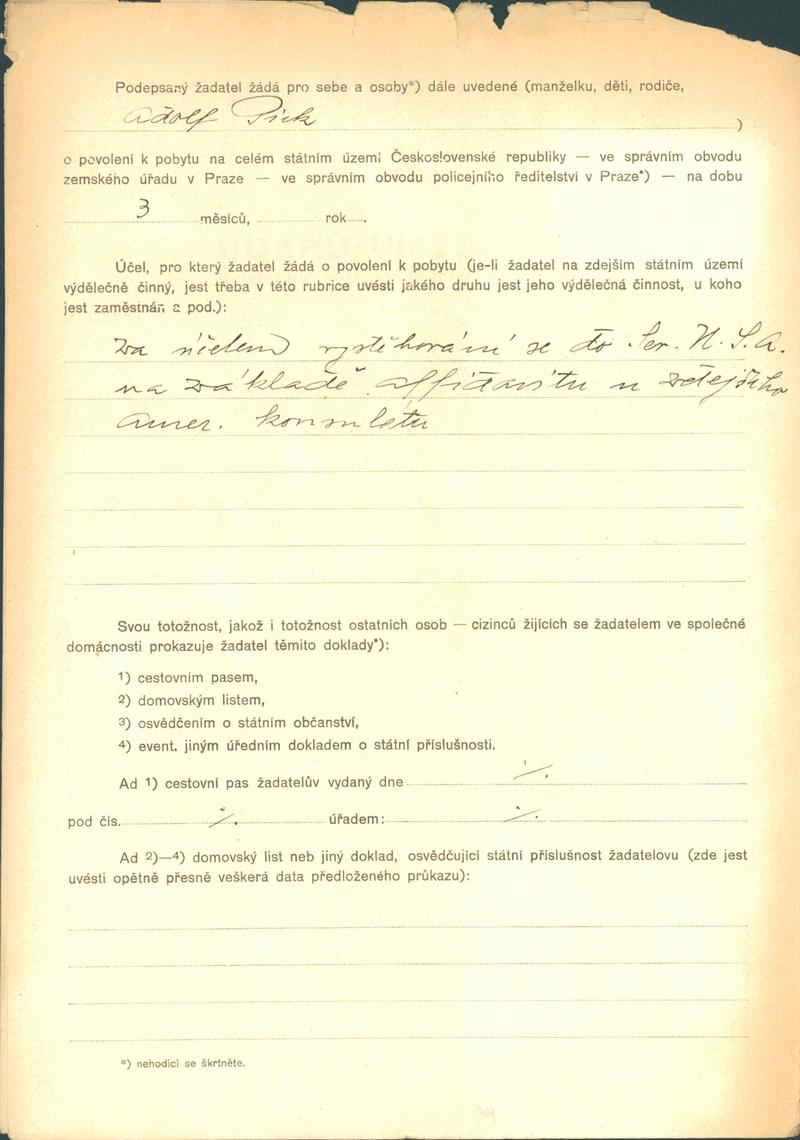 Podepsaný žadatel žádá pro sebe a osoby*) dále uvedené (manželku, děti, rodiče,
Adolf Pick )
o povolení k pobytu na celém státním území Československé republiky — ve správním obvodu
zemského úřadu v Praze — ve správním obvodu policejního ředitelství v Praze*) — na dobu
3 měsíců, rok
Účel, pro který žadatel žádá o povolení k pobytu (je-li žadatel na zdejším státním území
výdělečně činný, jest třeba v této rubrice uvésti jakého druhu jest jeho výdělečná činnost, u koho
jest zaměstnán a pod.):
za účelem vystěhování se do Sev. U. S. A.
na základě affidavitu u zdejšího
amer. konsulátu
Svou totožnost, jakož i totožnost ostatních osob — cizinců žijících se žadatelem ve společné
domácnosti prokazuje žadatel těmito doklady*):
1) cestovním pasem,
2) domovským listem,
3) osvědčením o státním občanství,
4) event. jiným úředním dokladem o státní příslušnosti.
Ad 1) cestovní pas žadatelův vydaný dne ./.
pod čís. ./. úřadem: ./.
Ad 2)—4) domovský list neb jiný doklad, osvědčující státní příslušnost žadatelovu (zde jest
uvésti opětně přesně veškerá data předloženého průkazu):
*) nehodící se škrtněte.